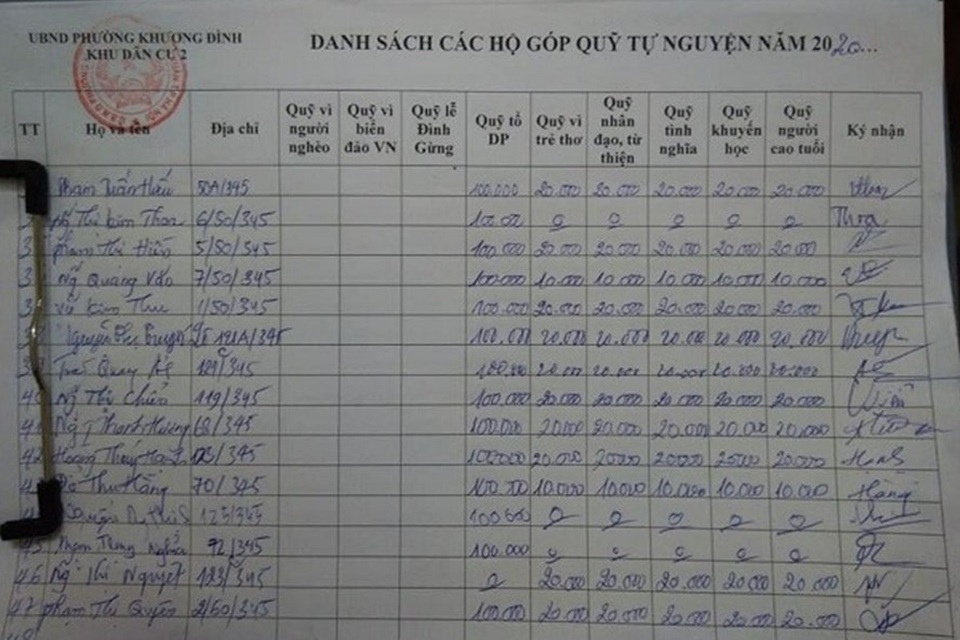 UBND PHƯỜNG KHƯƠNG ĐÌNH
KHU DÂN CƯ 2
DANH SÁCH CÁC HỘ GÓP QUỸ TỰ NGUYỆN NĂM 2020...
TT Họ và tên Địa chỉ Quỹ vì người nghèo Quỹ vì biển đảo VN Quỹ lễ Đình Gừng Quỹ tổ DP Quỹ vì trẻ thơ Quỹ nhân đạo, từ thiện Quỹ tình nghĩa Quỹ khuyến học Quỹ người cao tuổi Ký nhận
Phạm Tuấn Hiếu 50A/345 100.000 20.000 20.000 20.000 20.000 20.000
Thị Kim Thoa 6/50/345 100.000 0 0 0 0 0 Thoa
Phạm Thị Hiền 5/50/345 100.000 20.000 20.000 20.000 20.000 20.000
Ng Quảng Vấn 7/50/345 100.000 10.000 10.000 10.000 10.000 10.000
Vũ Kim Thu 1/50/345 100.000 20.000 20.000 20.000 20.000 20.000
Nguyễn 121A/345 100.000 20.000 20.000 20.000 20.000 20.000
121/345 100.000 20.000 20.000 20.000 20.000 20.000
40 Ng Thị Chiến 119/345 100.000 20.000 20.000 20.000 20.000 20.000
41 Ng T Thanh Hương 68/345 100.000 20.000 20.000 20.000 20.000 20.000
42 Hoàng Thúy /345 100.000 20.000 20.000 20.000 20.000 20.000
Đỗ Thu Hằng 70/345 100.000 10.000 10.000 10.000 10.000 10.000 Hằng
125/345 100.000 0 0 0 0 0
45 Phạm Trọng Nghĩa 72/345 100.000 0 0 0 0 0
46 Ng Thị Nguyệt 123/345 0 20.000 20.000 20.000 20.000 20.000
47 Phạm Thị Quyên 2/50/345 100.000 20.000 20.000 20.000 20.000 20.000